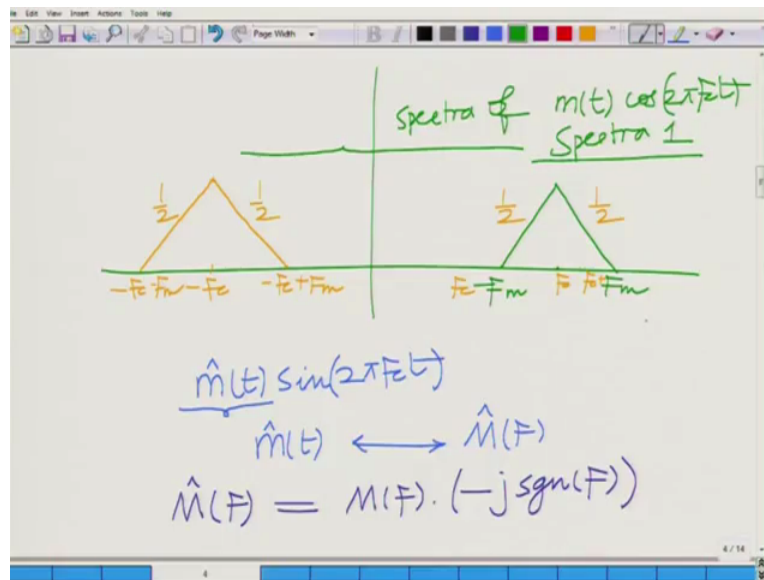 File Edit View Insert Actions Tools Help
Page Width
spectra of m(t) cos(2πFct)
Spectra 1
1/2 1/2 1/2 1/2
-Fc-Fm -Fc -Fc+Fm Fc-Fm Fc Fc+Fm
m̂(t) sin(2πFct)
m̂(t) ⟷ M̂(F)
M̂(F) = M(F). (-j sgn(F))
4 / 14
4